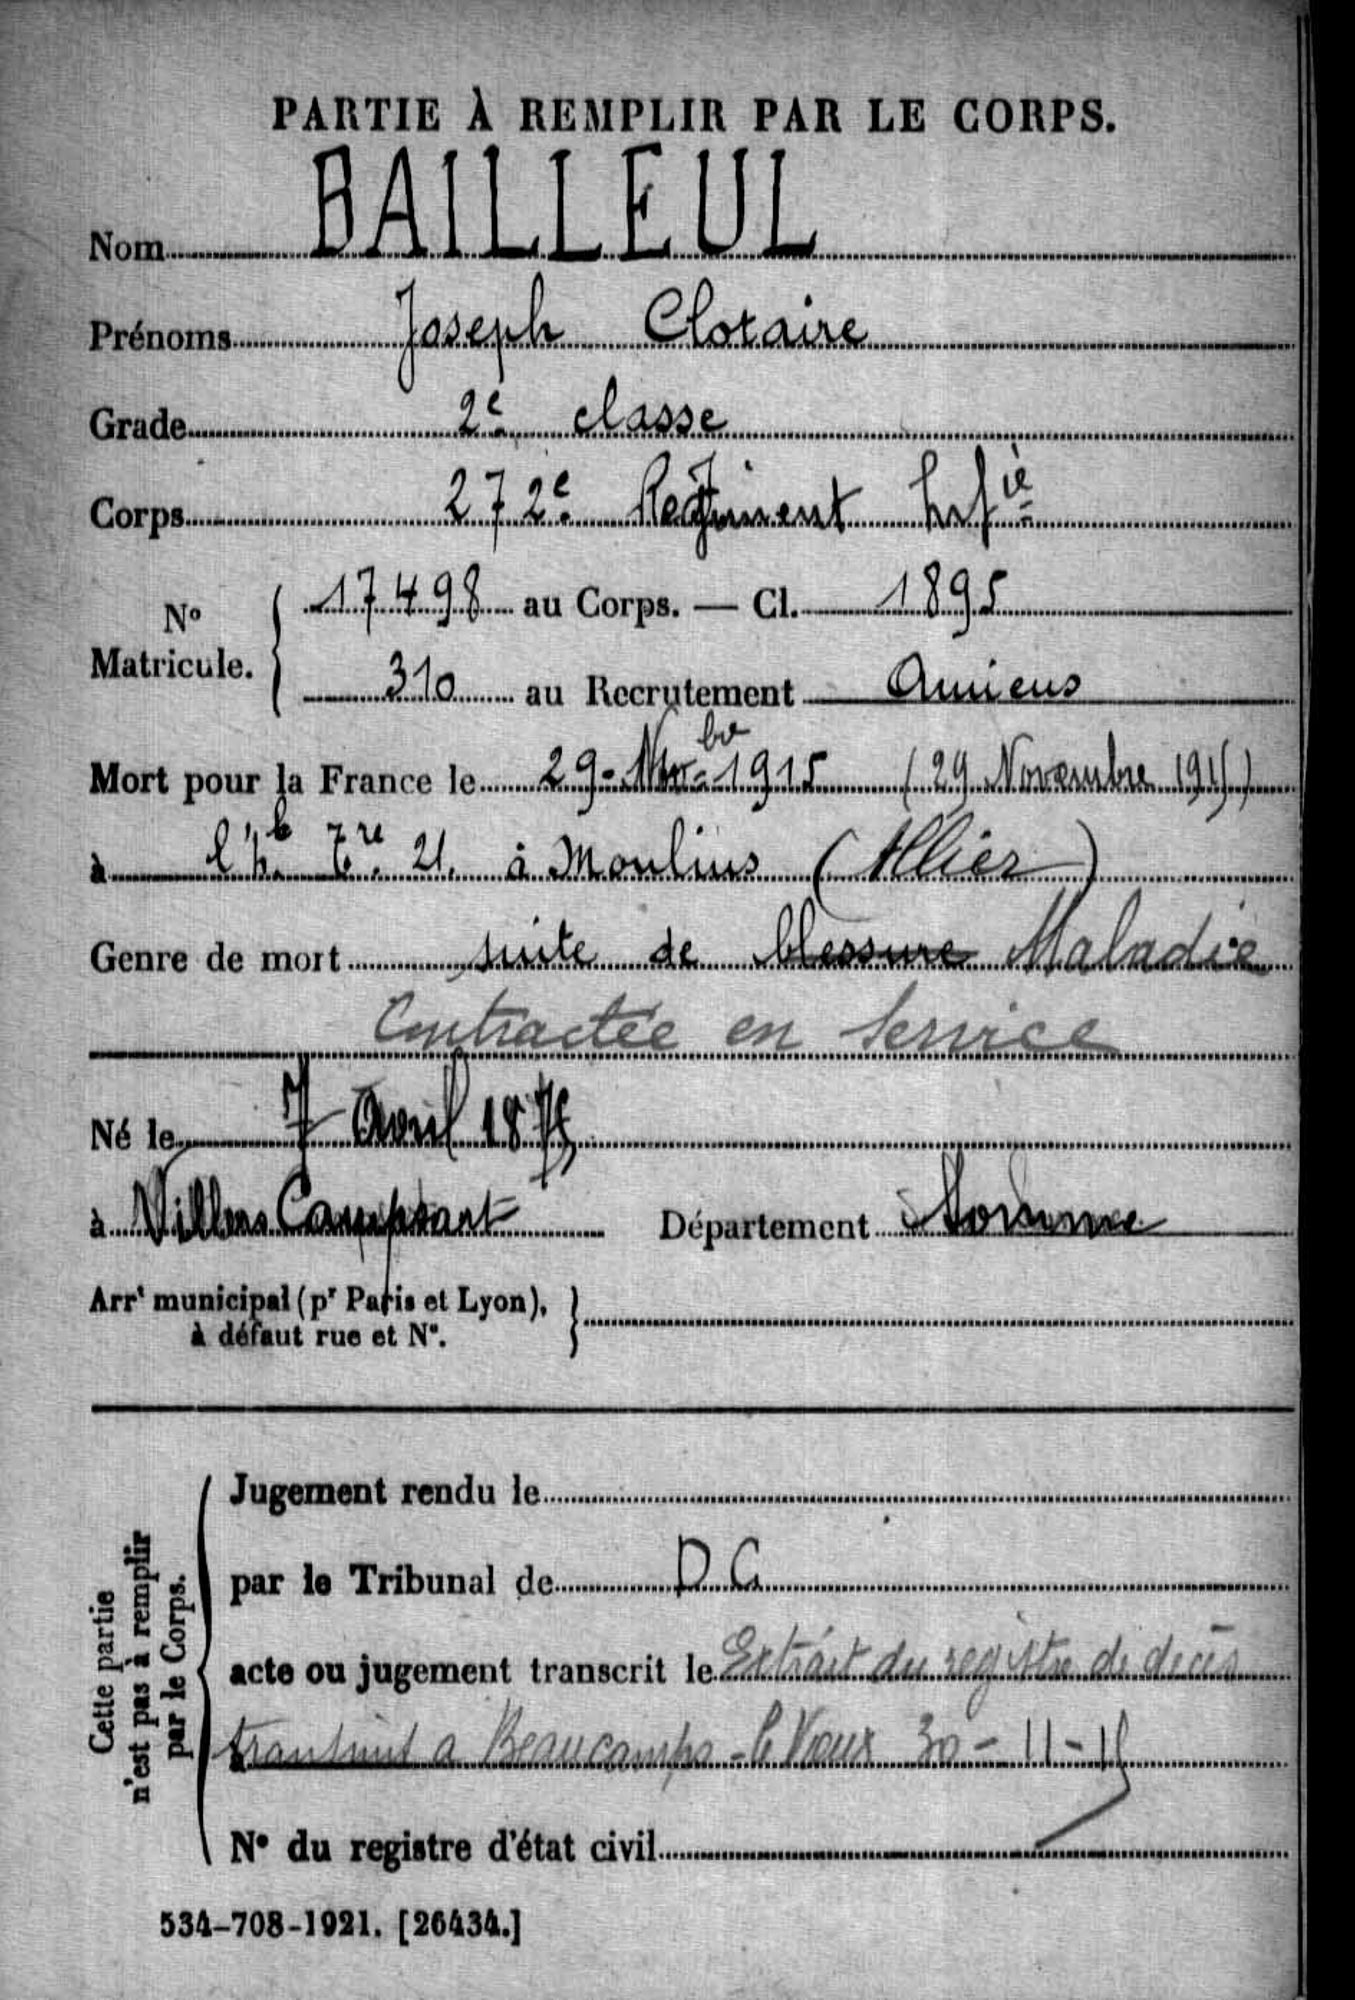 PARTIE À REMPLIR PAR LE CORPS.
Nom BAILLEUL
Prénoms Joseph Clotaire
Grade 2e classe
Corps 272e Régiment Infie
No Matricule. { 17498 au Corps. — Cl. 1895
310 au Recrutement Amiens
Mort pour la France le 29 - Nov bre 1915 (29 Novembre 1915)
à l'h. 21. à Moulins (Allier)
Genre de mort suite de blessure Maladie
Contractée en Service
Né le 7 Avril 1875
à Villers Campsart Département Somme
Arrt municipal (pr Paris et Lyon), }
à défaut rue et N°.
Cette partie
n'est pas à remplir
par le Corps.
Jugement rendu le
par le Tribunal de D C
acte ou jugement transcrit le Extrait du registre de décès
à transmis a Beaucamps-le Vieux 30-11-15
N° du registre d'état civil
534-708-1921. [26434.]